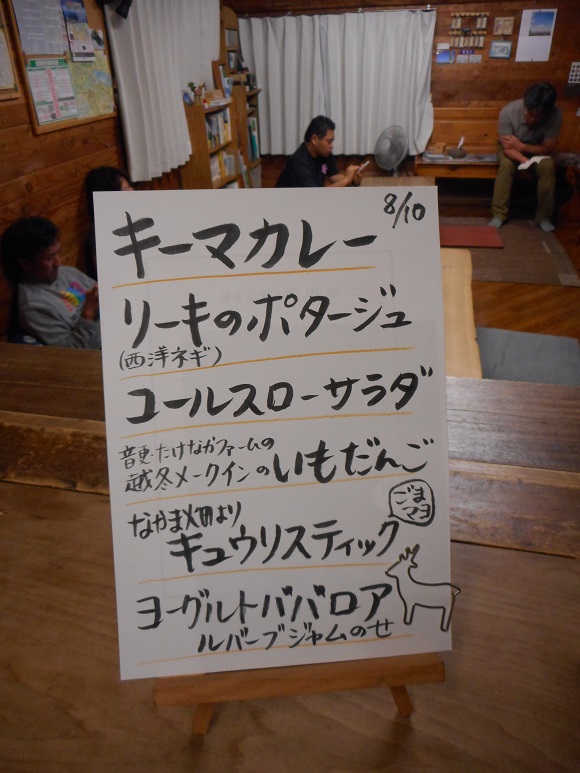 8/10
キーマカレー
リーキのポタージュ
(西洋ネギ)
コールスローサラダ
音更・たけなかファームの
越冬メークインのいもだんご
なかま畑より
ごま
マヨ
キュウリスティック
ヨーグルトババロア
ルバーブジャムのせ